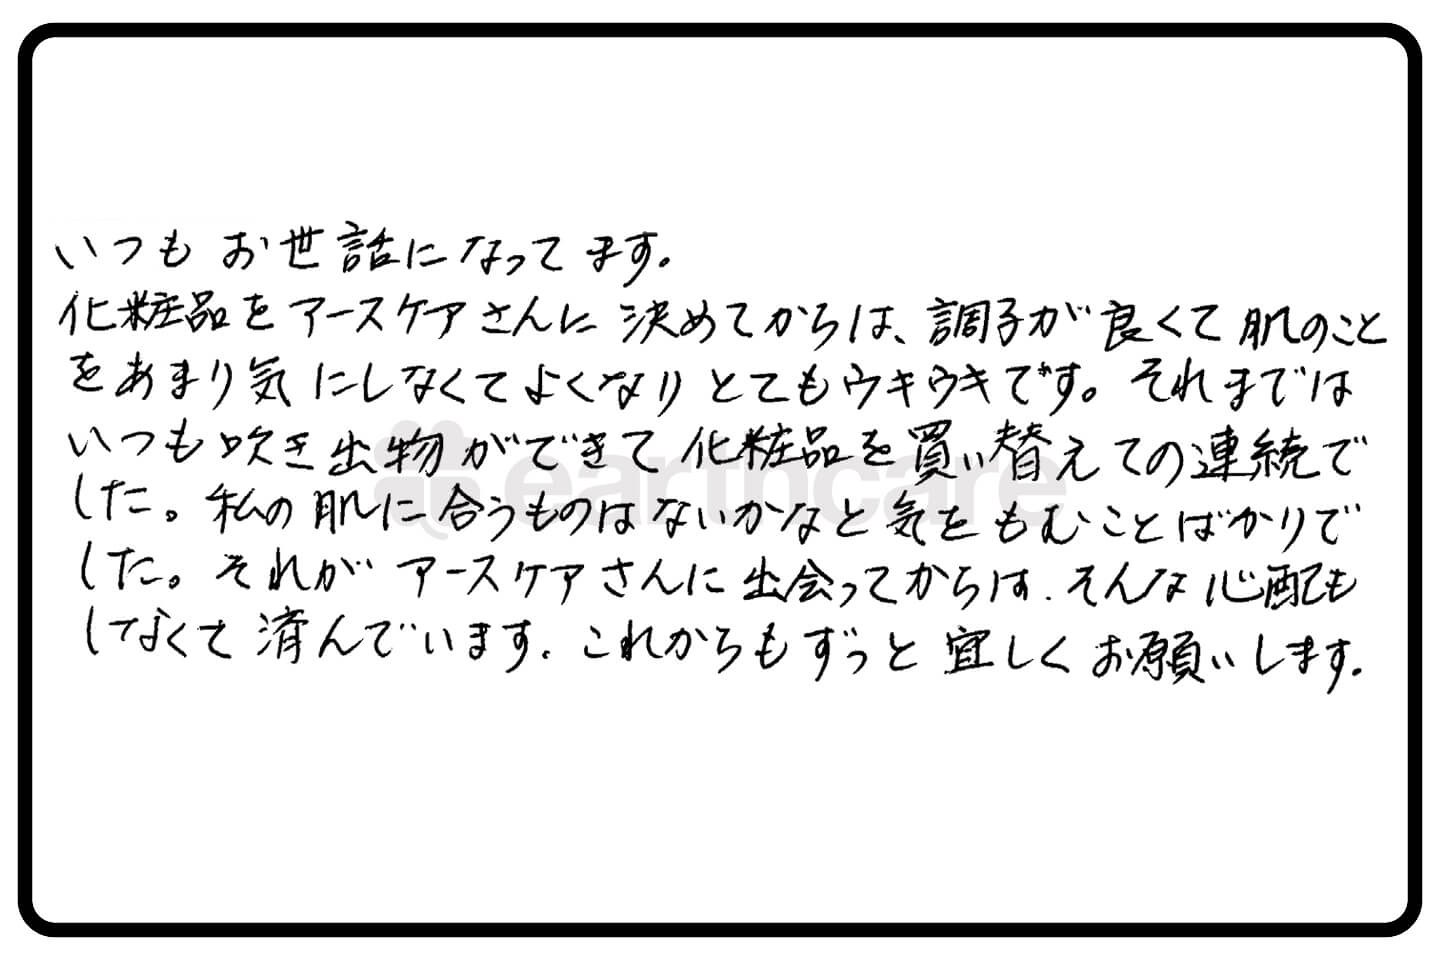 いつもお世話になってます。
化粧品をアースケアさんに決めてからは、調子が良くて肌のこと
をあまり気にしなくてよくなりとてもウキウキです。それまでは
いつも吹き出物ができて化粧品を買い替えての連続で
した。私の肌に合うものはないかなと気をもむことばかりで
した。それがアースケアさんに出会ってからは、そんな心配も
しなくて済んでいます。これからもずっと宜しくお願いします。
earthcare